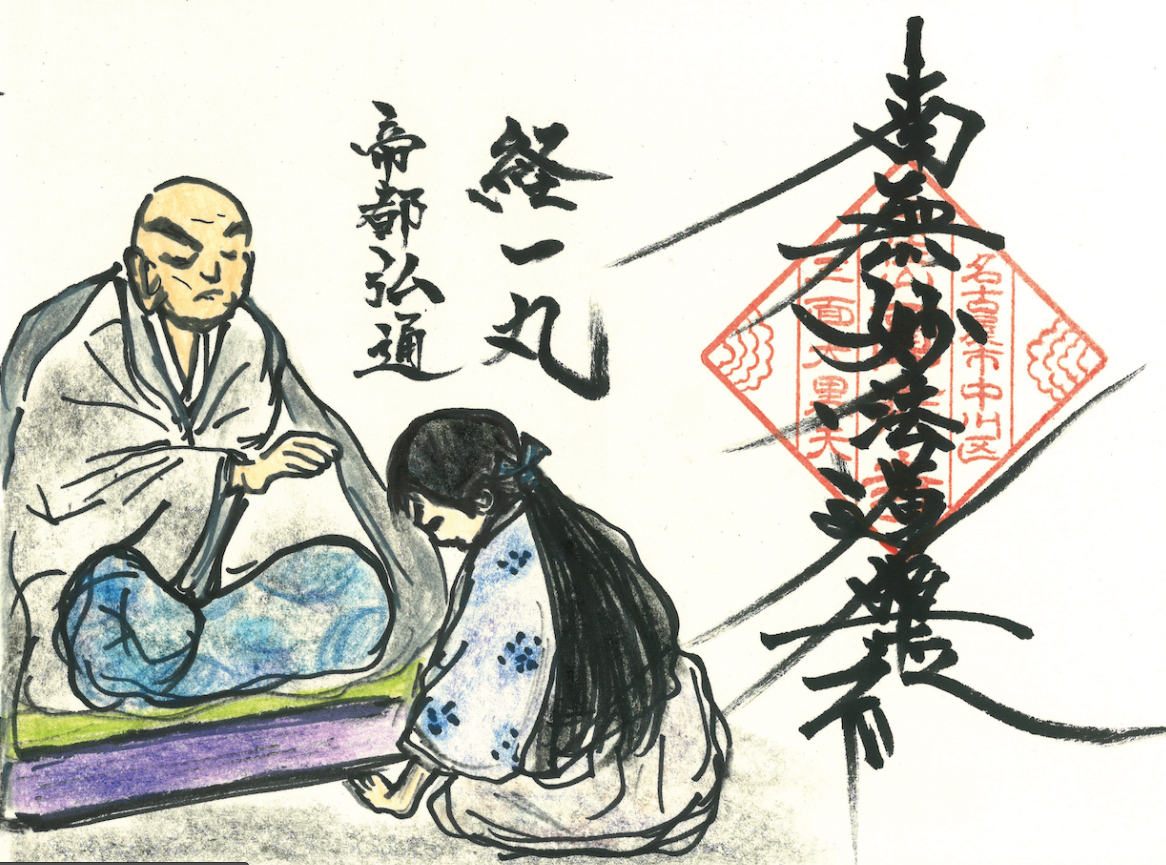 南無妙法蓮華経
名古屋市中川区
三面大黒天
経一丸
帝都弘通